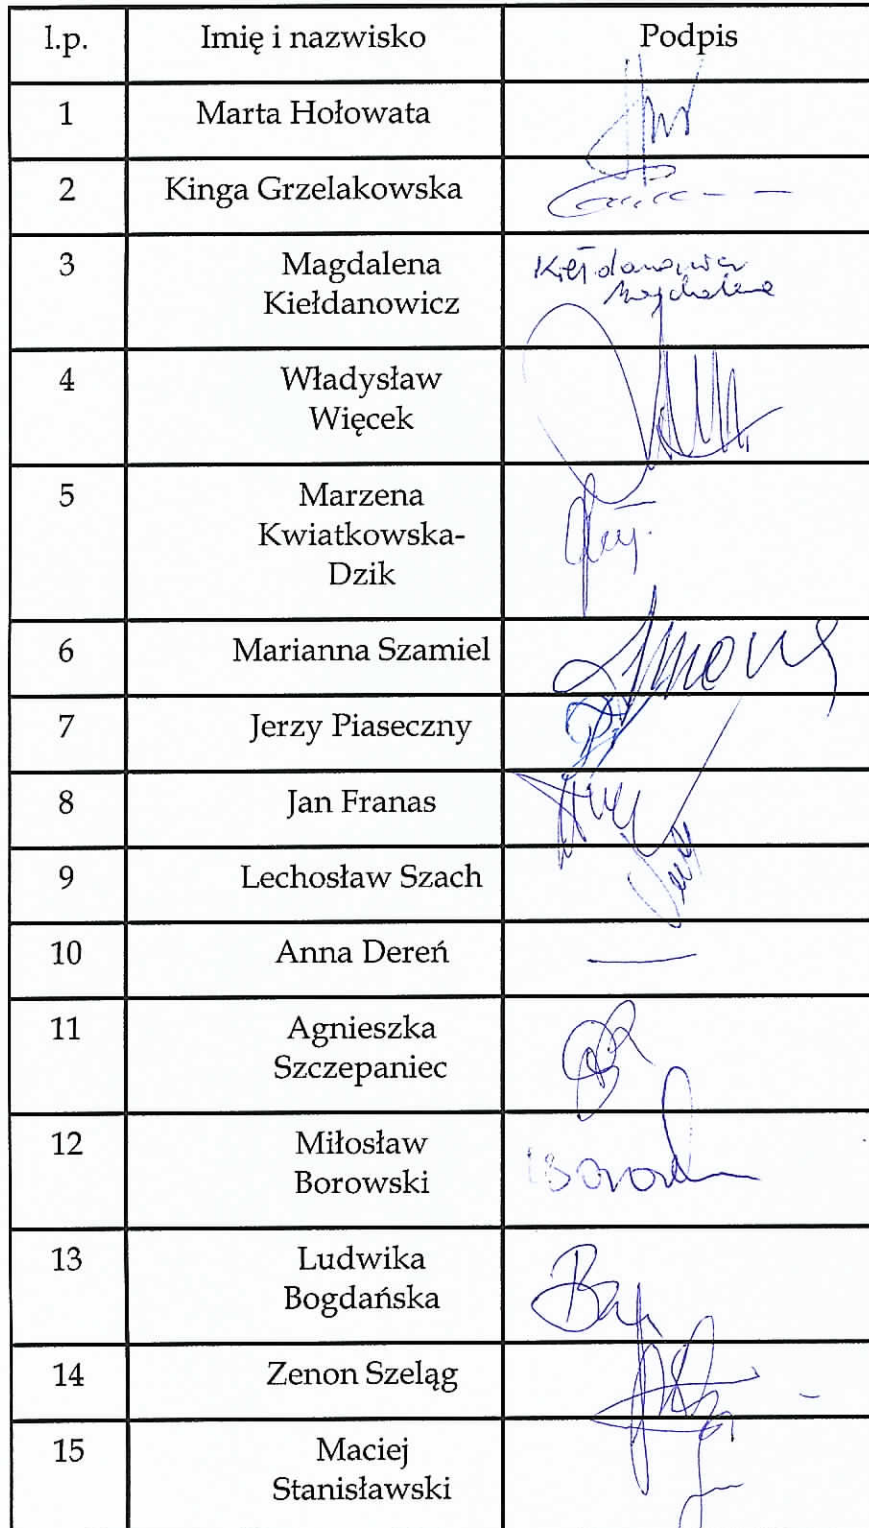 l.p. Imię i nazwisko Podpis
1 Marta Hołowata
2 Kinga Grzelakowska
3 Magdalena Kiełdanowicz
Magdalena
Kiełdanowicz
4 Władysław
Więcek
5 Marzena
Kwiatkowska-
Dzik
6 Marianna Szamiel
7 Jerzy Piaseczny
8 Jan Franas
9 Lechosław Szach
10 Anna Dereń —
11 Agnieszka
Szczepaniec
12 Miłosław
Borowski
13 Ludwika
Bogdańska
14 Zenon Szeląg
15 Maciej
Stanisławski